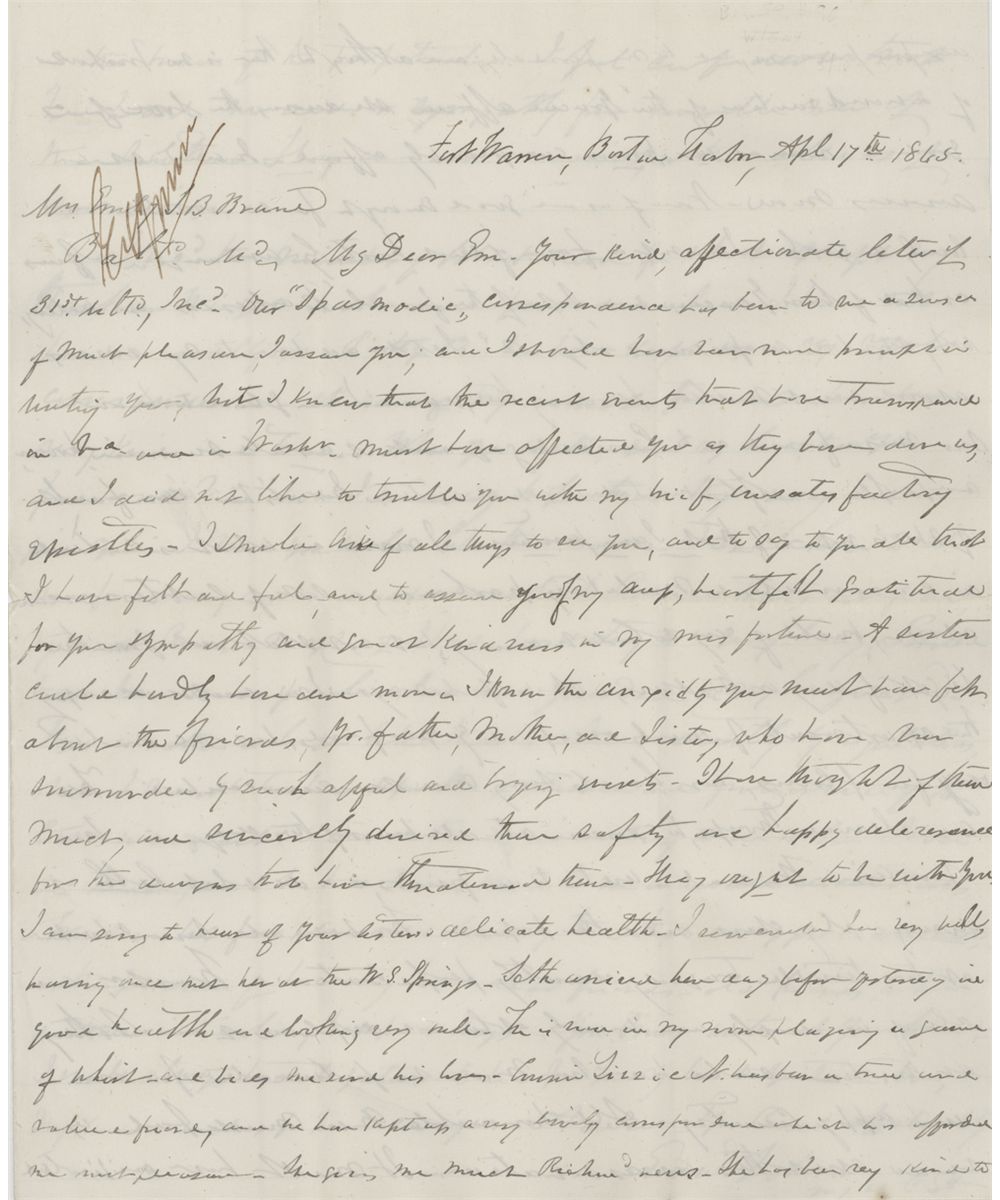 Fort Warren, Boston Harbor, Apl 17th 1865.
Mrs Emily J. B. Brand
Balto. Md, My Dear Em - Your kind, affectionate letter of
31st ulto, Incd. Our "Spasmodic" correspondence has been to me a source
of much pleasure, I assure you; and I should have been more prompt in
writing you, but I knew that the recent events that have transpired
in Va and in Washn. must have affected you as they have done us,
and I did not like to trouble you with my brief, unsatisfactory
epistles - I should like of all things to see you, and to say to you all that
I have felt and feel, and to assure you of my deep, heartfelt gratitude
for your sympathy and great kindness in my misfortune - A sister
could hardly have done more. I know the anxiety you must have felt
about the friends, Yr. father, Mother, and Sister, who have been
surrounded by such awful and trying events - I have thought of them
much, and sincerely desired their safety and happy deliverance
from the dangers that have threatened them - They ought to be with you.
I am sorry to hear of your sisters delicate health - I remember her very well,
having once met her at the W. S. Springs - Seth arrived here day before yesterday in
good health and looking very well - He is now in my room playing a game
of whist and bids me send his love - Cousin Lizzie N. has been a true and
valued friend, and we have kept up a very lively correspondence which has afforded
me much pleasure - She gives me much Richmd news - She has been very kind to